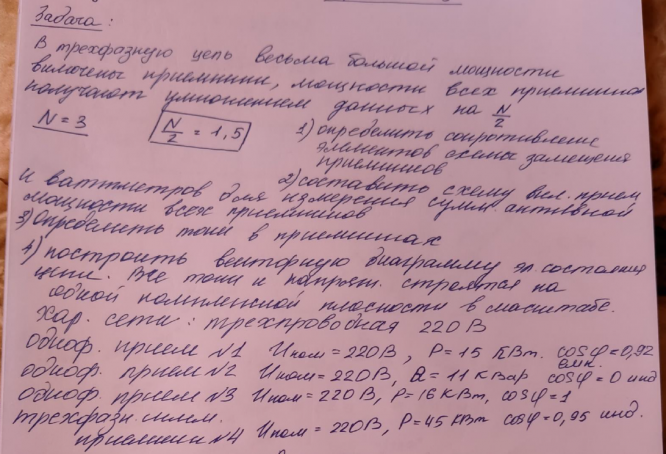 Задача:
В трехфазную цепь весьма большой мощности
включены приемники, мощности всех приемников
получают умножением данных на N/2
N = 3
N/2 = 1,5
1) определить сопротивление
элементов схемы замещения
приемников
2) составить схему вкл. прием
и ваттметров для измерения сумм. активной
мощности всех приемников
3) определить токи в приемниках
4) построить векторную диаграмму эл состояния
цепи. Все токи и напряж. строятся на
одной комплексной плоскости в масштабе.
Хар. сети: трехпроводная 220 В
одноф. прием №1 Uном = 220 В, P = 15 кВт. cosφ = 0,92
емк.
одноф. прием №2 Uном = 220 В, Q = 11 кВар cosφ = 0 инд
одноф. прием №3 Uном = 220 В, P = 16 кВт, cosφ = 1
трехфазн. симм.
приемники №4 Uном = 220 В, P = 45 кВт cosφ = 0,95 инд.